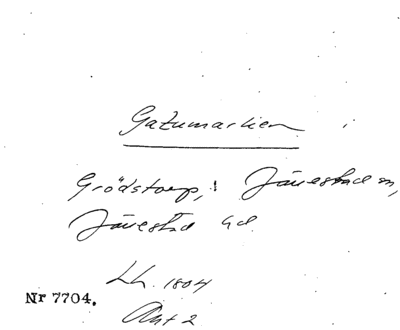 Gatumarken i
Grödstorp, i Järrestad sn,
Järrestad hd
Lh. 1804
Nr 7704.
Akt 2